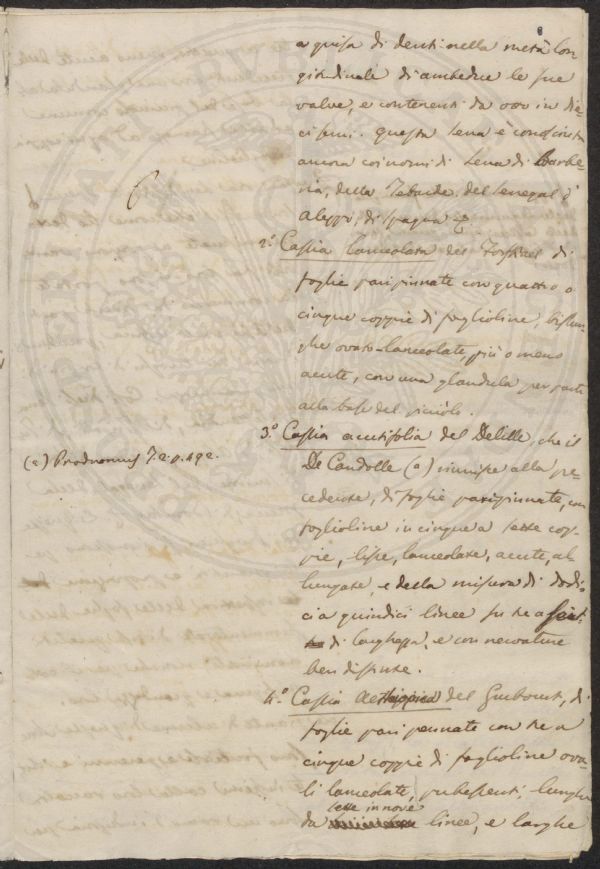 8
a guisa di denti nella metà lon
gitudinale di ambedue le sue
valve, e contenenti da otto in die
ci semi. Questa Sena è conosciuta
ancora coi nomi di Sena di Barbe-
ria, della Tebaide, del Senegal, d'
Aleppo, di Spagna &
2.° Cassia lanceolata del Forskael di
foglie paripinnate con quattro o
cinque coppie di foglioline, bislun-
ghe ovato-lanceolate, più o meno
acute, con una glandula per parte
alla base del picciòlo.
3.° Cassia acutifolia del Delille, che il
De Candolle (a) riunisce alla pre-
cedente, di foglie paripinnate, con
foglioline in cinque a sette cop-
pie, lisce, lanceolate, acute, al-
lungate, e della misura di dodi-
ci a quindici linee su tre a sei
di larghezza, e con nervature
ben distinte.
(a) Prodromus T. 2. p. 492.
4.° Cassia Aethiopica del Guibourt, di
foglie pari pennate con tre a
cinque coppie di foglioline ova-
li lanceolate, pubescenti, lunghe
sette in nove
da linee, e larghe